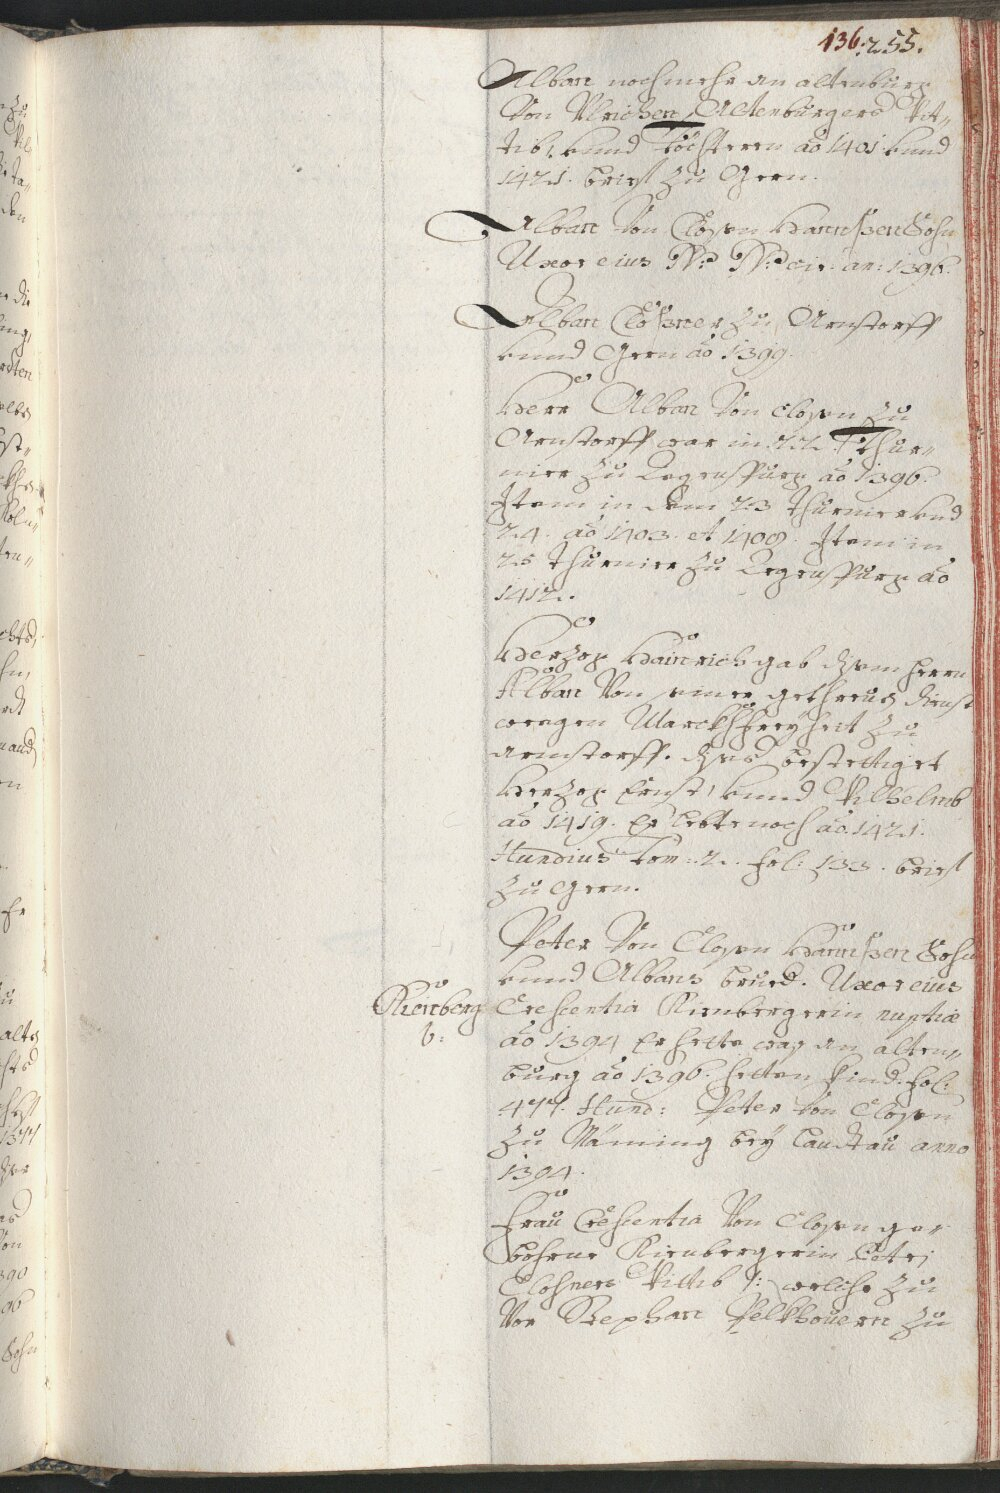 136. 255.
Alban noch mehr an altenburg
Von Ulrichen Altenburgers Wit-
tib, unnd Töchtern ao 1401 unnd
1421. brief zu Gern.
Alban Von Closen Hannßen Sohn
Uxor eius N: N: cir: an: 1396.
Alban Cloßner zu Arnstorff
unnd Gern ao 1399.
Herr Alban Von Closen zu
Arnstorff war in 22 Thur-
nier zu Regenspurg ao 1396.
Item in dem 23 Thurnier und
24. ao 1403. et 1408. Item in
25 Thurnier zu Regenspurg ao
1412.
Herzog Hainrich gab disem herrn
Alban Von seiner getreuen dienst
wegen Marckhsfreyheit zu
arnstorff. dises bestettiget
Herzog Ernst, unnd Wilhelmb
ao 1419. Er lebte noch ao 1421.
Hundius tom: 2. fol: 133. brief
zu Gern.
Peter Von Closen Hannßen Sohn
unnd Albans brued. Uxor eius
Kienberg Crescentia Kienbergerin nuptiæ
ao 1394 Er hette was an alten-
burg ao 1396. hetten kind. fol:
477. Hund: Peter Von Closen
zu Mäming bey Landtau anno
1394.
Frau Crescentia Von Closen ge-
bohrne Kienbergerin Petri
Closners Wittib /: welche zu
Vor Stephan Pelkhouern zu